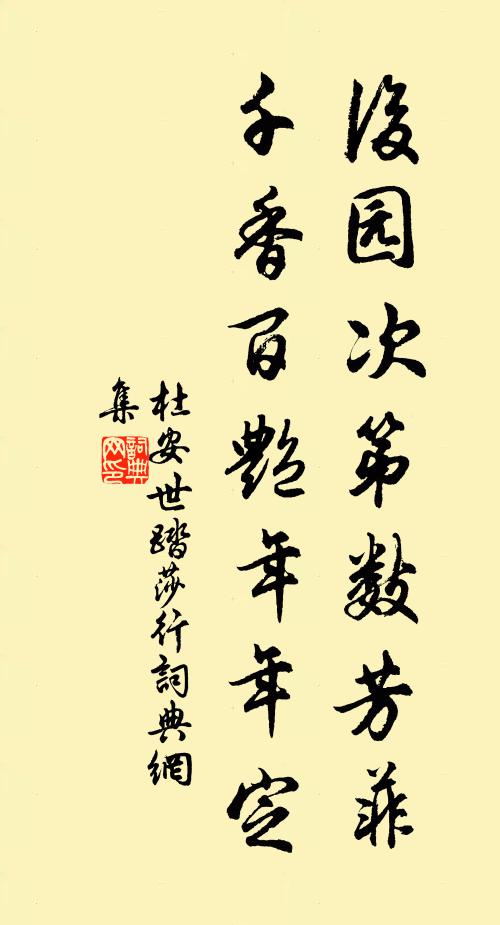 後园次第數芳菲
千香百艷年年定
杜安世踏莎行詞典網
集
詞典網印